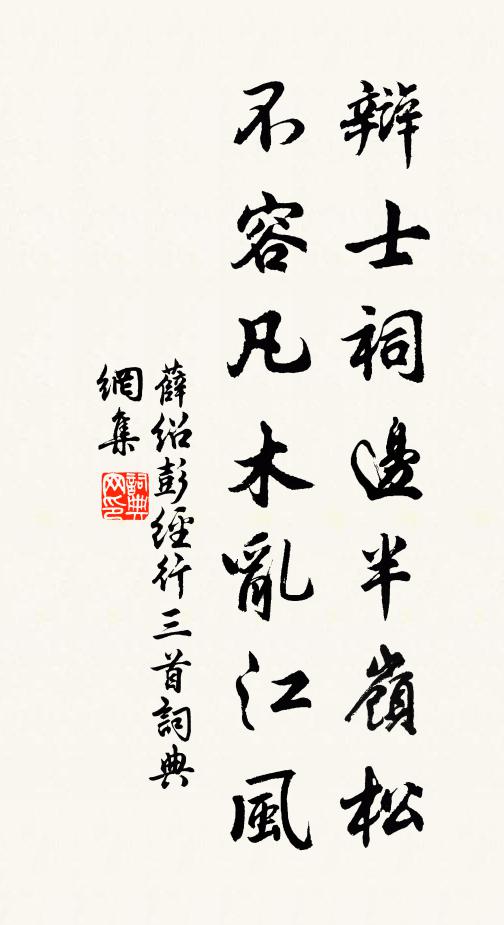 辯士祠邊半嶺松
不容凡木亂江風
薛紹彭經行三首詞典
網集
詞典網印